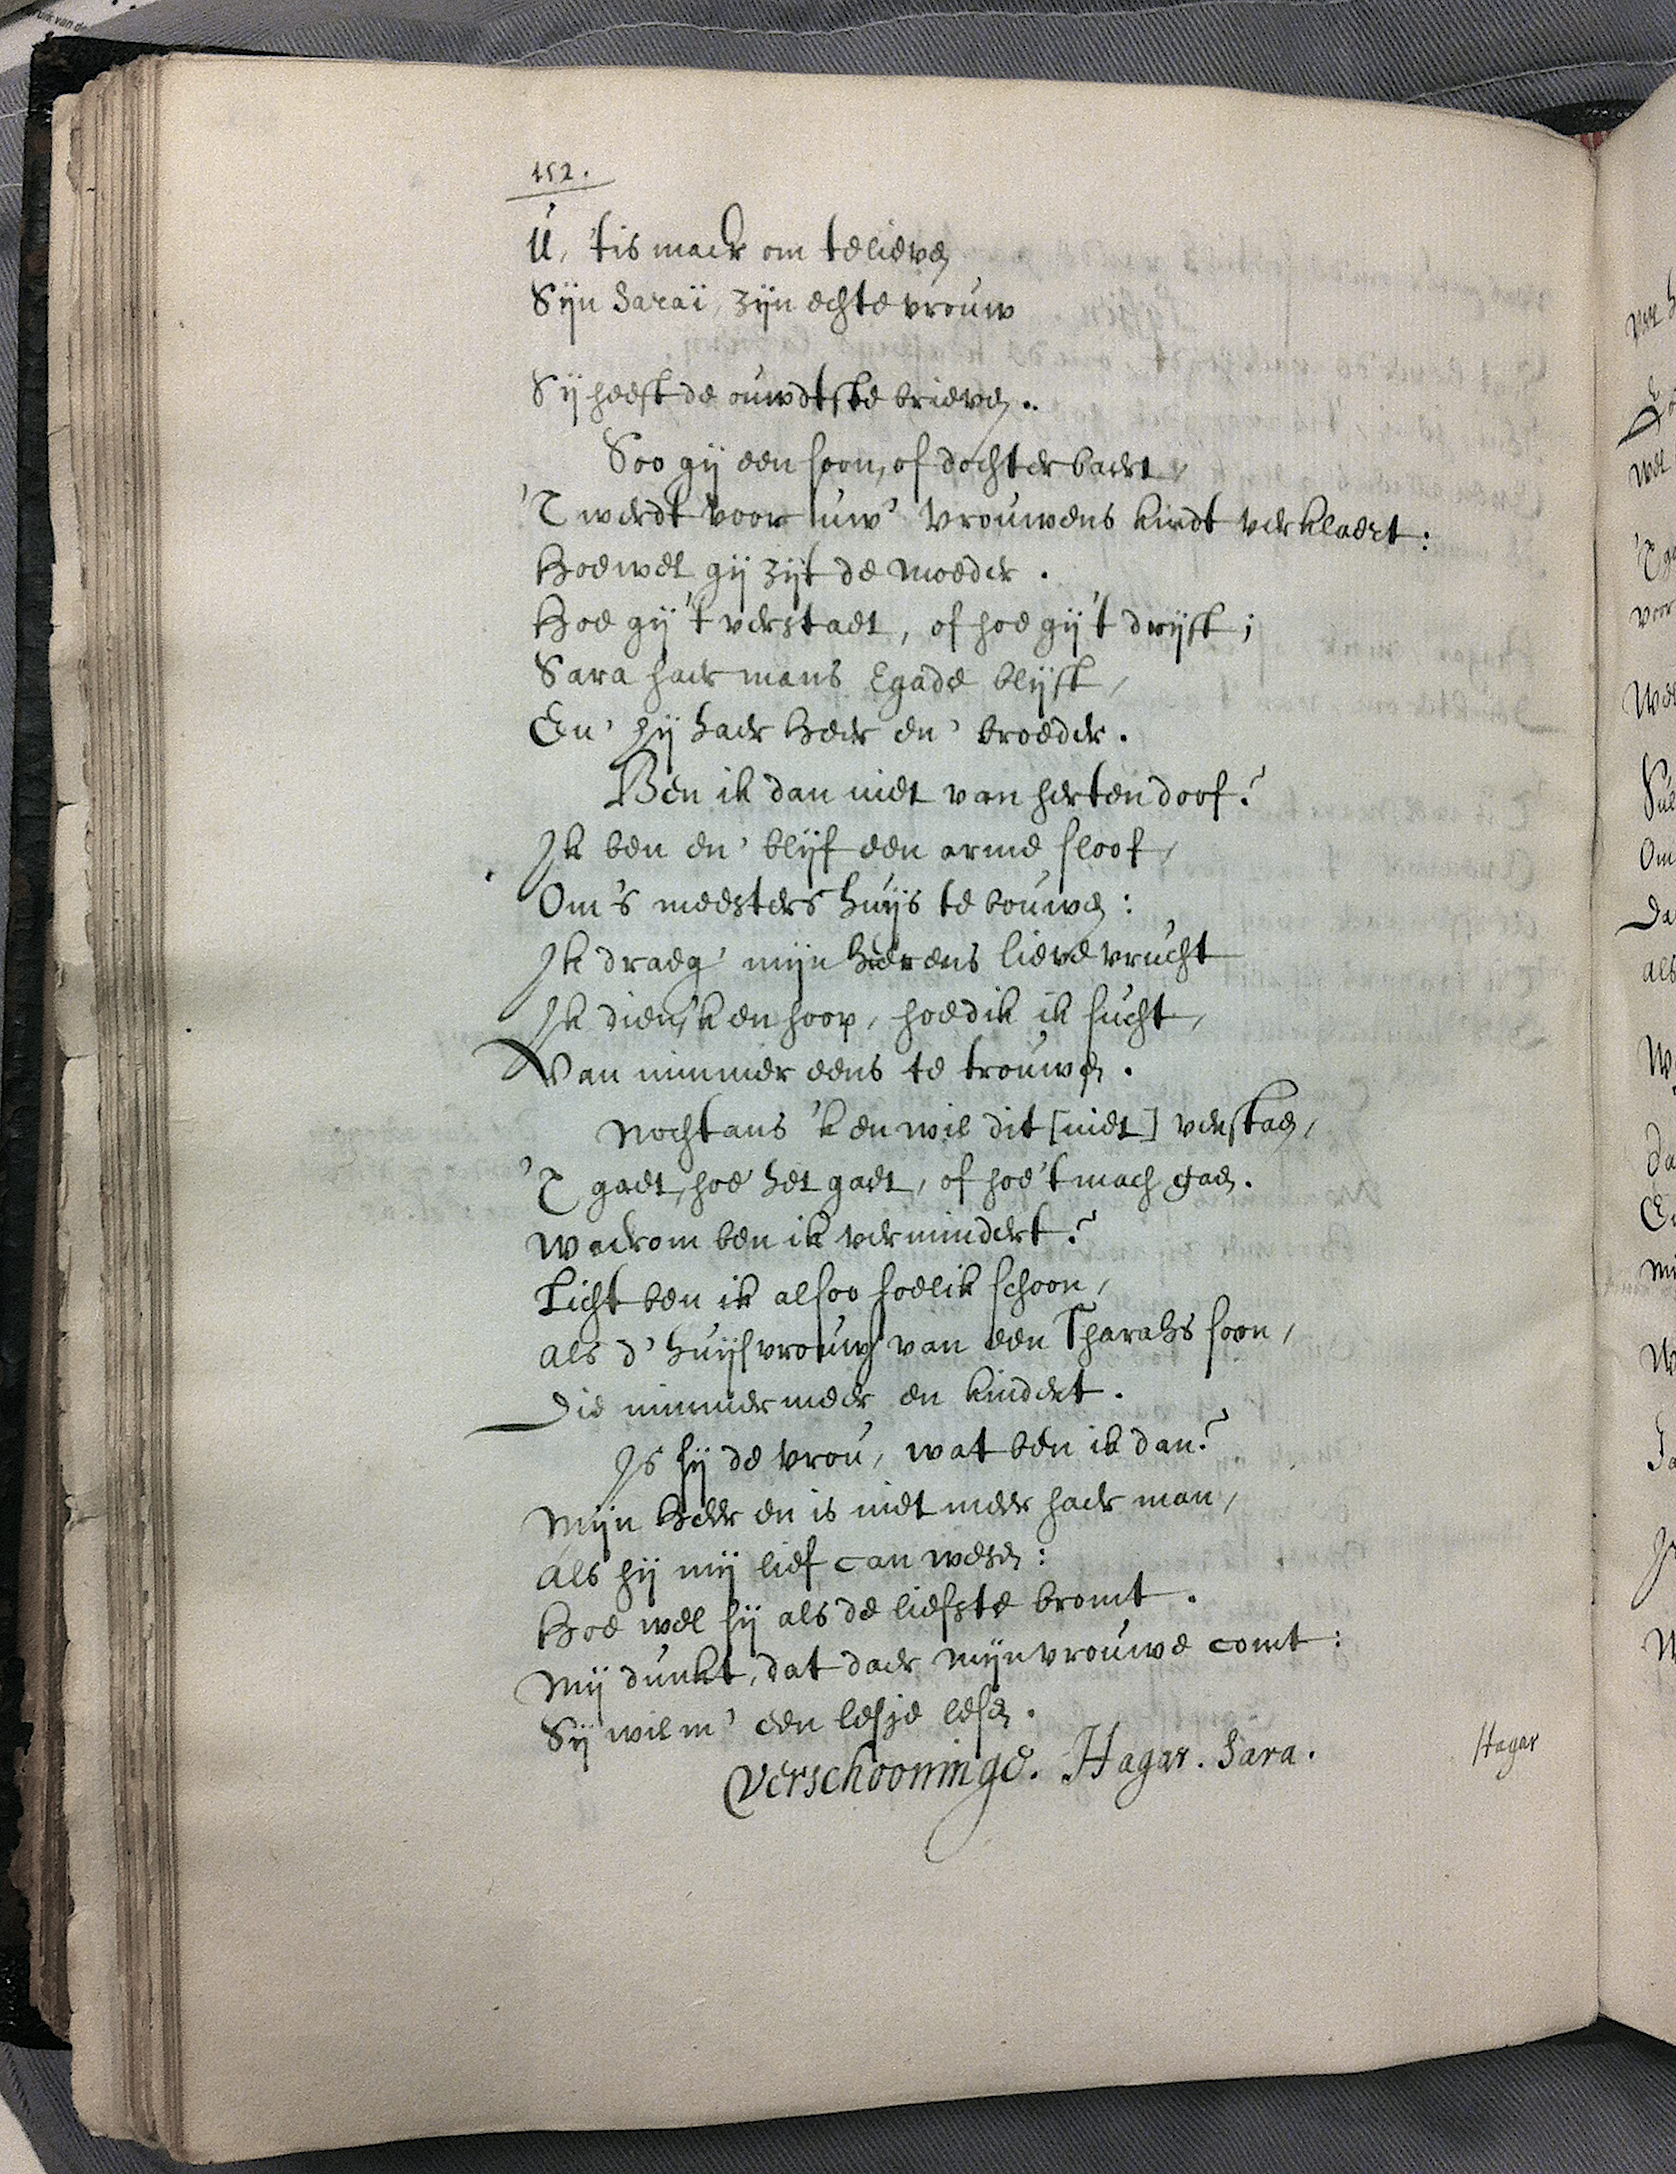 152.
U, 'tis maer om te lieven
Sijn Saraï, zijn echte vrouw
Sij heeft de ouwdtste brieven.
Soo gij een soon, of dochter baert,
'T werdt voor uw' vrouwens kindt verklaert:
Hoewel gij zijt de moeder.
Hoe gij't verstaet, of hoe gij't drijft;
Sara haer mans Egade blijft,
En' hij haer Heer en' broeder.
Ben ik dan niet van herten doof?
Ik ben en' blijf een arme sloof,
Om's meesters huijs te bouwen:
Ik draeg' mijn heerens lieve vrucht
Ik dien, 'k en hoop, hoe dik ik sucht,
Van nimmer eens te trouwen.
Nochtans 'k en wil dit [niet] verstaen,
'T gaet, hoe het gaet, of hoe't mach gaen.
Waerom ben ik vermindert?
Licht ben ik alsoo soelik schoon,
als d' huijsvrouw van een Tharahs soon,
Die nimmermeer en kindert.
Is sij de vrou, wat ben ik dan?
Mijn Heer en is niet meer haer man,
Als hij mij lief can wesen:
Hoe wel sij als de liefste bromt.
Mij dunkt, dat daer mijn vrouwe comt:
Sij wil m' een lesje lesen.
Verschooninge. Hagar. Sara.
Hagar